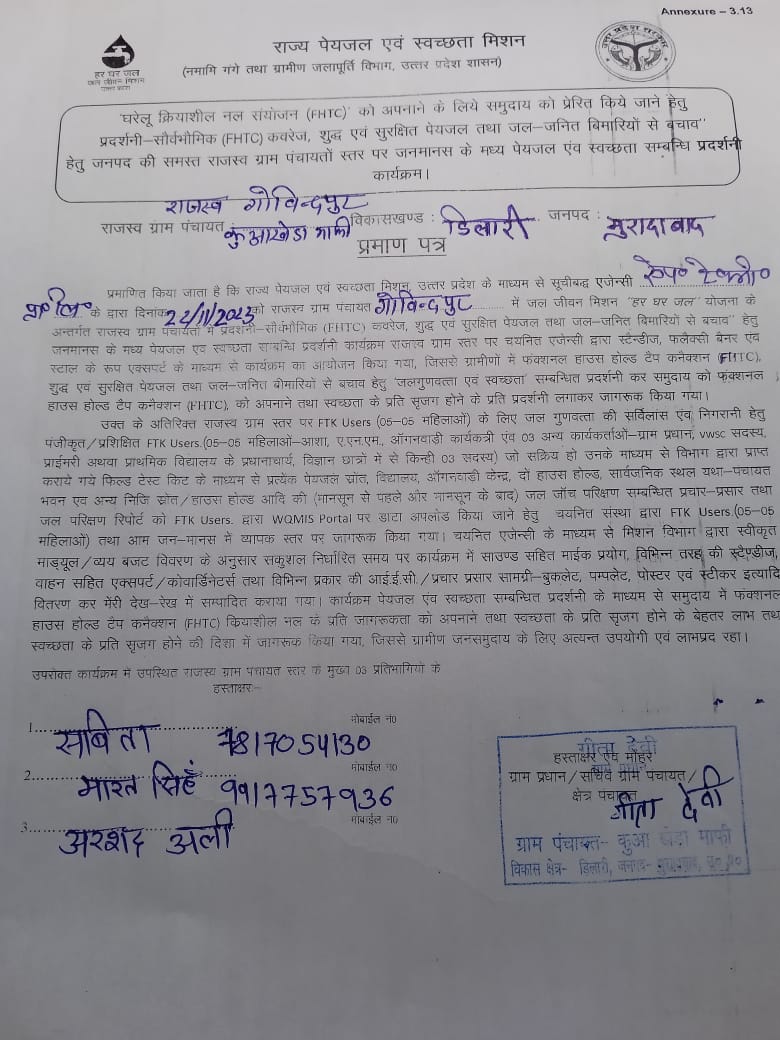 Annexure – 3.13
राज्य पेयजल एवं स्वच्छता मिशन
हर घर जल
जल जीवन मिशन
(नमामि गंगे तथा ग्रामीण जलापूर्ति विभाग, उत्तर प्रदेश शासन)
'घरेलू क्रियाशील नल संयोजन (FHTC)' को अपनाने के लिये समुदाय को प्रेरित किये जाने हेतु
प्रदर्शनी–सौर्वभौमिक (FHTC) कवरेज, शुद्ध एवं सुरक्षित पेयजल तथा जल–जनित बिमारियों से बचाव"
हेतु जनपद की समस्त राजस्व ग्राम पंचायतों स्तर पर जनमानस के मध्य पेयजल एंव स्वच्छता सम्बन्धि प्रदर्शनी
कार्यक्रम।
राजस्व गोविन्दपुर
राजस्व ग्राम पंचायत कुआखेडा माफी विकासखण्ड : डिलारी जनपद : मुरादाबाद
प्रमाण पत्र
प्रमाणित किया जाता है कि राज्य पेयजल एवं स्वच्छता मिशन, उत्तर प्रदेश के माध्यम से सूचीबद्ध एजेन्सी
प्रा० लि० के द्वारा दिनांक 22/11/2023 को राजस्व ग्राम पंचायत गोविन्दपुर में जल जीवन मिशन "हर घर जल" योजना के
अन्तर्गत राजस्व ग्राम पंचायतों में प्रदर्शनी–सौर्वभौमिक (FHTC) कवरेज, शुद्ध एवं सुरक्षित पेयजल तथा जल–जनित बिमारियों से बचाव" हेतु
जनमानस के मध्य पेयजल एंव स्वच्छता सम्बन्धि प्रदर्शनी कार्यक्रम राजस्व ग्राम स्तर पर चयनित एजेन्सी द्वारा स्टैन्डीज, फलैक्सी बैनर एंव
स्टाल के रूप एक्सपर्ट के माध्यम से कार्यक्रम का आयोजन किया गया, जिससे ग्रामीणों में फंक्शनल हाउस होल्ड टैप कनैक्शन (FHTC),
शुद्ध एवं सुरक्षित पेयजल तथा जल–जनित बीमारियों से बचाव हेतु 'जलगुणवत्ता एवं स्वच्छता' सम्बन्धित प्रदर्शनी कर समुदाय को फंक्शनल
हाउस होल्ड टैप कनैक्शन (FHTC), को अपनाने तथा स्वच्छता के प्रति सृजग होने के प्रति प्रदर्शनी लगाकर जागरूक किया गया।
उक्त के अतिरिक्त राजस्व ग्राम स्तर पर FTK Users (05–05 महिलाओं) के लिए जल गुणवत्ता की सर्विलांस एंव निगरानी हेतु
पंजीकृत/प्रशिक्षित FTK Users.(05–05 महिलाओं–आशा, ए.एन.एम., ऑगनवाड़ी कार्यकत्री एंव 03 अन्य कार्यकर्ताओं–ग्राम प्रधान, vwsc सदस्य,
प्राईमरी अथवा प्राथमिक विद्यालय के प्रधानाचार्य, विज्ञान छात्रों में से किन्ही 03 सदस्य) जो सक्रिय हो उनके माध्यम से विभाग द्वारा प्राप्त
कराये गये फिल्ड टेस्ट किट के माध्यम से प्रत्येक पेयजल स्रोत, विद्यालय, ऑगनवाड़ी केन्द्र, दों हाउस होल्ड, सार्वजनिक स्थल यथा–पंचायत
भवन एंव अन्य निजि स्रोत/हाउस होल्ड आदि की (मानसून से पहले और मानसून के बाद) जल जॉच परिक्षण सम्बन्धित प्रचार–प्रसार तथा
जल परिक्षण रिपोर्ट को FTK Users. द्वारा WQMIS Portal पर डाटा अपलोड किया जाने हेतु चयनित संस्था द्वारा FTK Users.(05–05
महिलाओं) तथा आम जन–मानस में व्यापक स्तर पर जागरूक किया गया। चयनित एजेन्सी के माध्यम से मिशन विभाग द्वारा स्वीकृत
माड्यूल/व्यय बजट विवरण के अनुसार सकुशल निर्धारित समय पर कार्यक्रम में साउण्ड सहित माईक प्रयोग, विभिन्न तरह की स्टैण्डीज,
वाहन सहित एक्सपर्ट/कोवार्डिनेटर्स तथा विभिन्न प्रकार की आई.ई.सी./प्रचार प्रसार सामग्री–बुकलेट, पम्पलेट, पोस्टर एवं स्टीकर इत्यादि
वितरण कर मेंरी देख–रेख में सम्पादित कराया गया। कार्यक्रम पेयजल एंव स्वच्छता सम्बन्धित प्रदर्शनी के माध्यम से समुदाय में फंक्शनल
हाउस होल्ड टैप कनैक्शन (FHTC) कियाशील नल के प्रति जागरूकता को अपनाने तथा स्वच्छता के प्रति सृजग होने के बेहतर लाभ तथ
स्वच्छता के प्रति सृजग होने की दिशा में जागरूक किया गया, जिससे ग्रामीण जनसमुदाय के लिए अत्यन्त उपयोगी एवं लाभप्रद रहा।
उपरोक्त कार्यक्रम में उपस्थित राजस्व ग्राम पंचायत स्तर के मुख्य 03 प्रतिभागियों के
हस्ताक्षरः–
1. सबिता मोबाईल नं0 7817054130
2. भारत सिहँ मोबाईल नं0 9917757936
3. अरशद अली मोबाईल नं0
गीता देवी
हस्ताक्षर एवं मोहर
ग्राम प्रधान/सचिव ग्राम पंचायत/
क्षेत्र पंचायत
गीता देवी
ग्राम पंचायत– कुआ खेडा माफी
विकास क्षेत्र– डिलारी, जनपद– मुरादाबाद, उ० प्र०